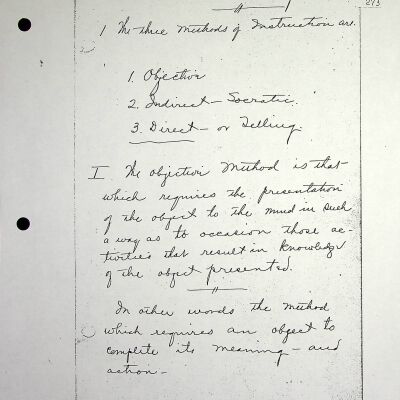 293
1 The three Methods of Instruction are.
1. Objective
2. Indirect — Socratic.
3. Direct — or Telling.
I. The objective Method is that
which requires the presentation
of the object to the mind in such
a way as to occasion those ac-
tivities that result in knowledge
of the object presented.
In other words the method
which requires an object to
complete its meaning — and
action —